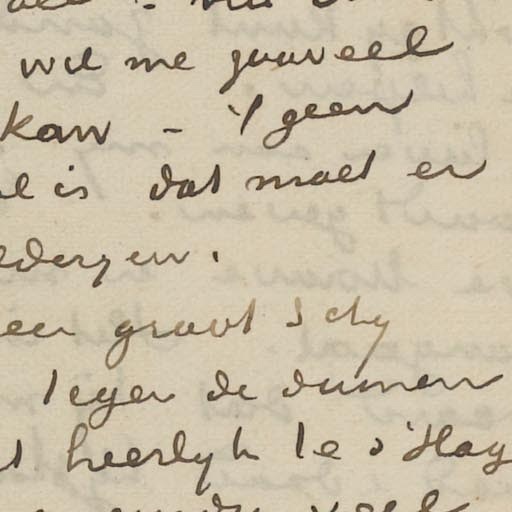 wil me zooveel
kan - 't geen
is dat moet er
een groot schy
tegen de duinen
heerlyk te s'Hag